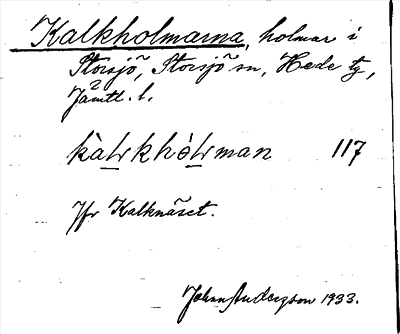 Kalkholmarna, holmar i
Storsjö, Storsjö sn, Hede tg,
Jämtl. l.
117
Jfr Kalknäset.
Johan Anderzson 1933.